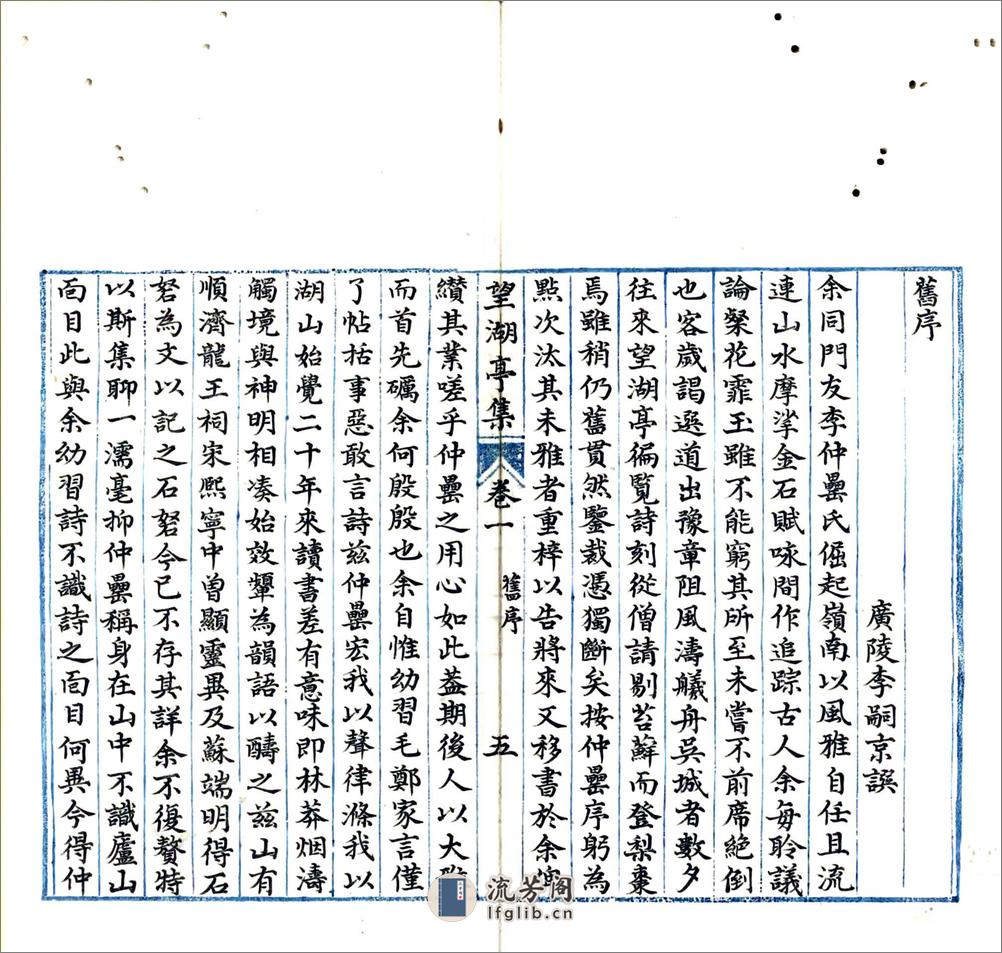 舊序
廣陵李嗣京譔
余同門友李仲罍氏倔起嶺南以風雅自任且流
連山水摩挲金石賦咏間作追踪古人余每聆議
論粲花霏玉雖不能窮其所至未嘗不前席絕倒
也客歲謁選道出豫章阻風濤艤舟吳城者數夕
往來望湖亭徧覽詩刻從僧請剔苔蘚而登梨棗
焉雖稍仍舊貫然鑒裁憑獨斷矣按仲罍序躬為
點次汰其未雅者重梓以告將來又移書於余
望湖亭集 卷一 舊序 五
纘其業嗟乎仲罍之用心如此葢期後人以大
而首先礪余何殷殷也余自惟幼習毛鄭家言僅
了帖括事惡敢言詩茲仲罍宏我以聲律滌我以
湖山始覺二十年來讀書差有意味即林莽烟濤
觸境與神明相凑始效顰為韻語以醻之茲山有
順濟龍王祠宋熙寧中曽顯靈異及蘇端明得石
砮為文以記之石砮今已不存其詳余不復贅特
以斯集聊一濡毫抑仲罍稱身在山中不識廬山
靣目此與余幼習詩不識詩之靣目何異今得仲
流芳阁
lfglib.cn